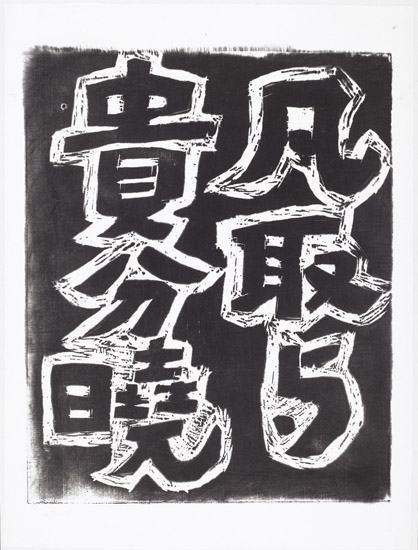 凡取与
貴分曉